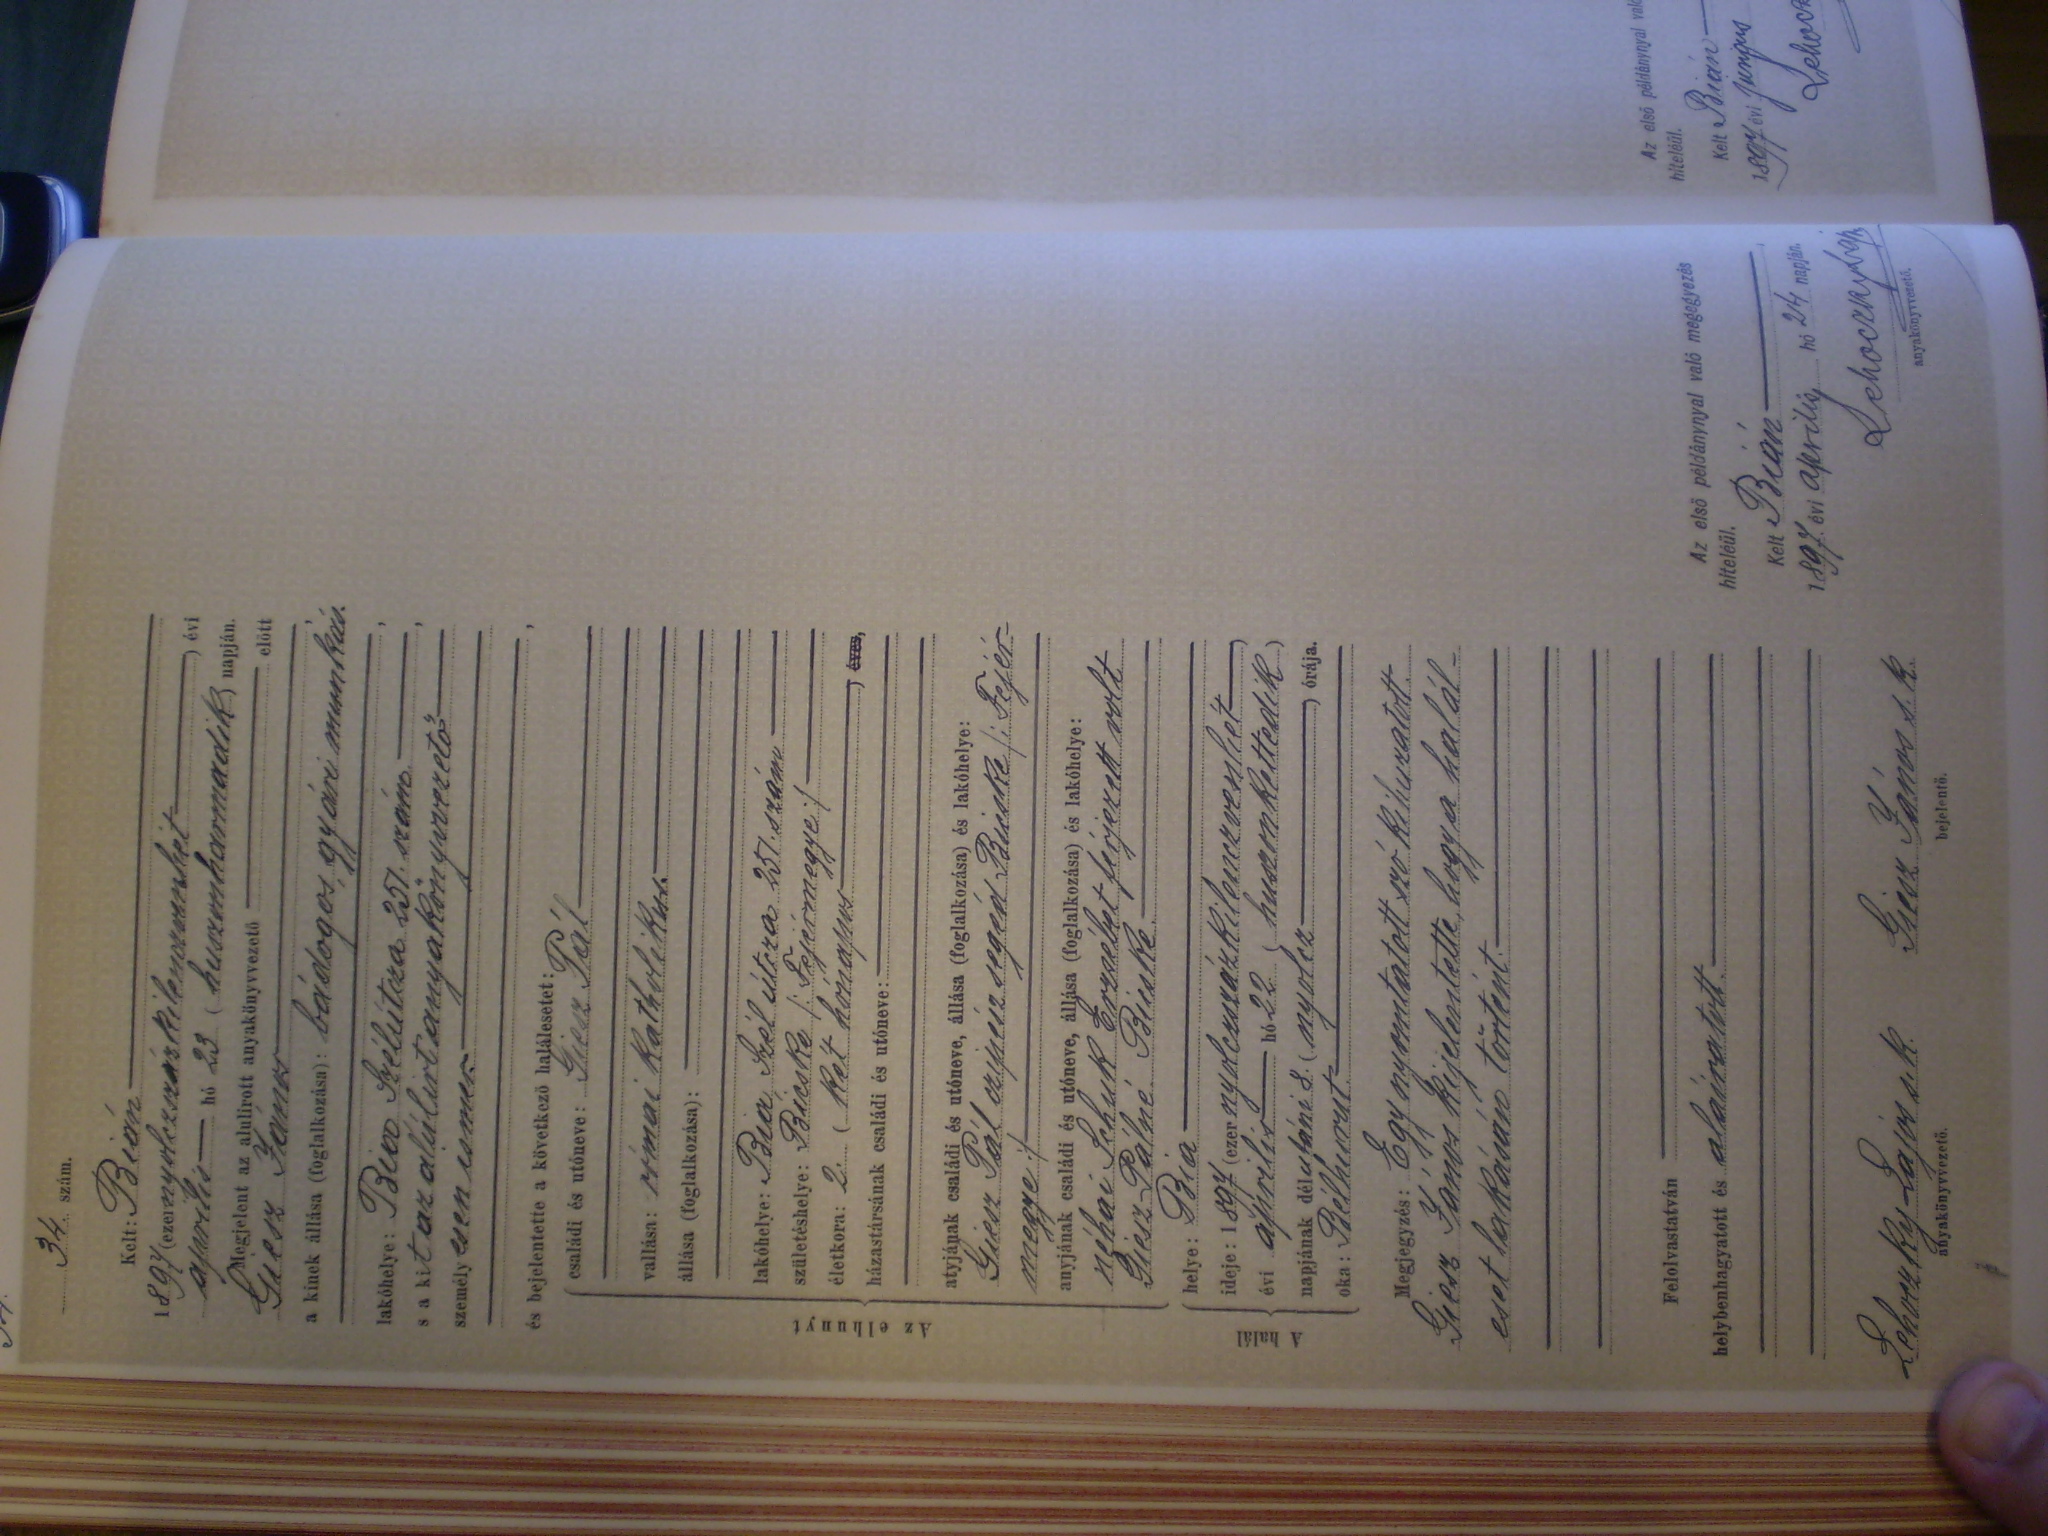 34. szám.
Kelt: Bián
1897 (ezernyolczszázkilenczvenhét) évi
aprilis hó 23 (huszonharmadik) napján.
Megjelent az alulirott anyakönyvvezető előtt
Giesz János
a kinek állása (foglalkozása): bádogos, gyári munkás,
lakóhelye: Bia Szélútza 251. szám,
s a kit az alúlirt anyakönyvvezető,
személyesen ismer
és bejelentette a következő halálesetet:
Az elhunyt
családi és utóneve: Giesz Pál
vallása: római katholikus.
állása (foglalkozása):
lakóhelye: Bia Szél útcza 251. szám
születéshelye: Bicske /: Fejérmegye :/
életkora: 2. (két hónapos) éves,
házastársának családi és utóneve:
atyjának családi és utóneve, állása (foglalkozása) és lakóhelye:
Giesz Pál czipész segéd Bicske /: Fejér-
megye :/
anyjának családi és utóneve, állása (foglalkozása) és lakóhelye:
néhai Schuk Erzsébet férjezett volt
Giesz Pálné. Bicske.
A halál
helye: Bia
ideje: 1897 (ezer nyolczszázkilenczvenhét)
évi aprilis hó 22 (huszonkettedik)
napjának délutáni 8. (nyolcz) órája.
oka: Bélhurut.
Megjegyzés: Egy nyomtatott szó kihuzatott.
Giesz János kijelentette, hogy a halál-
eset lakásán történt.
Felolvastatván
helybenhagyatott és aláiratott.
Lehoczky Lajos s. k. Giesz János s. k.
anyakönyvvezető. bejelentő.
Az első példánynyal való megegyezés
hiteléül.
Kelt Bián
1897. évi aprilis hó 24 napján.
Lehoczky Lajos
anyakönyvvezető.
Az első példánynyal való
hiteléül.
Kelt Bián
1897 évi junius
Lehocz